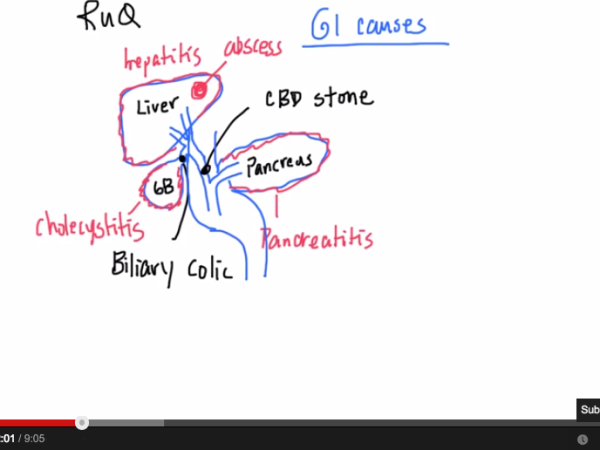 RUQ
GI causes
hepatitis
abscess
Liver
CBD stone
Pancreas
GB
Cholecystitis
Pancreatitis
Biliary Colic
Sub
:01 / 9:05